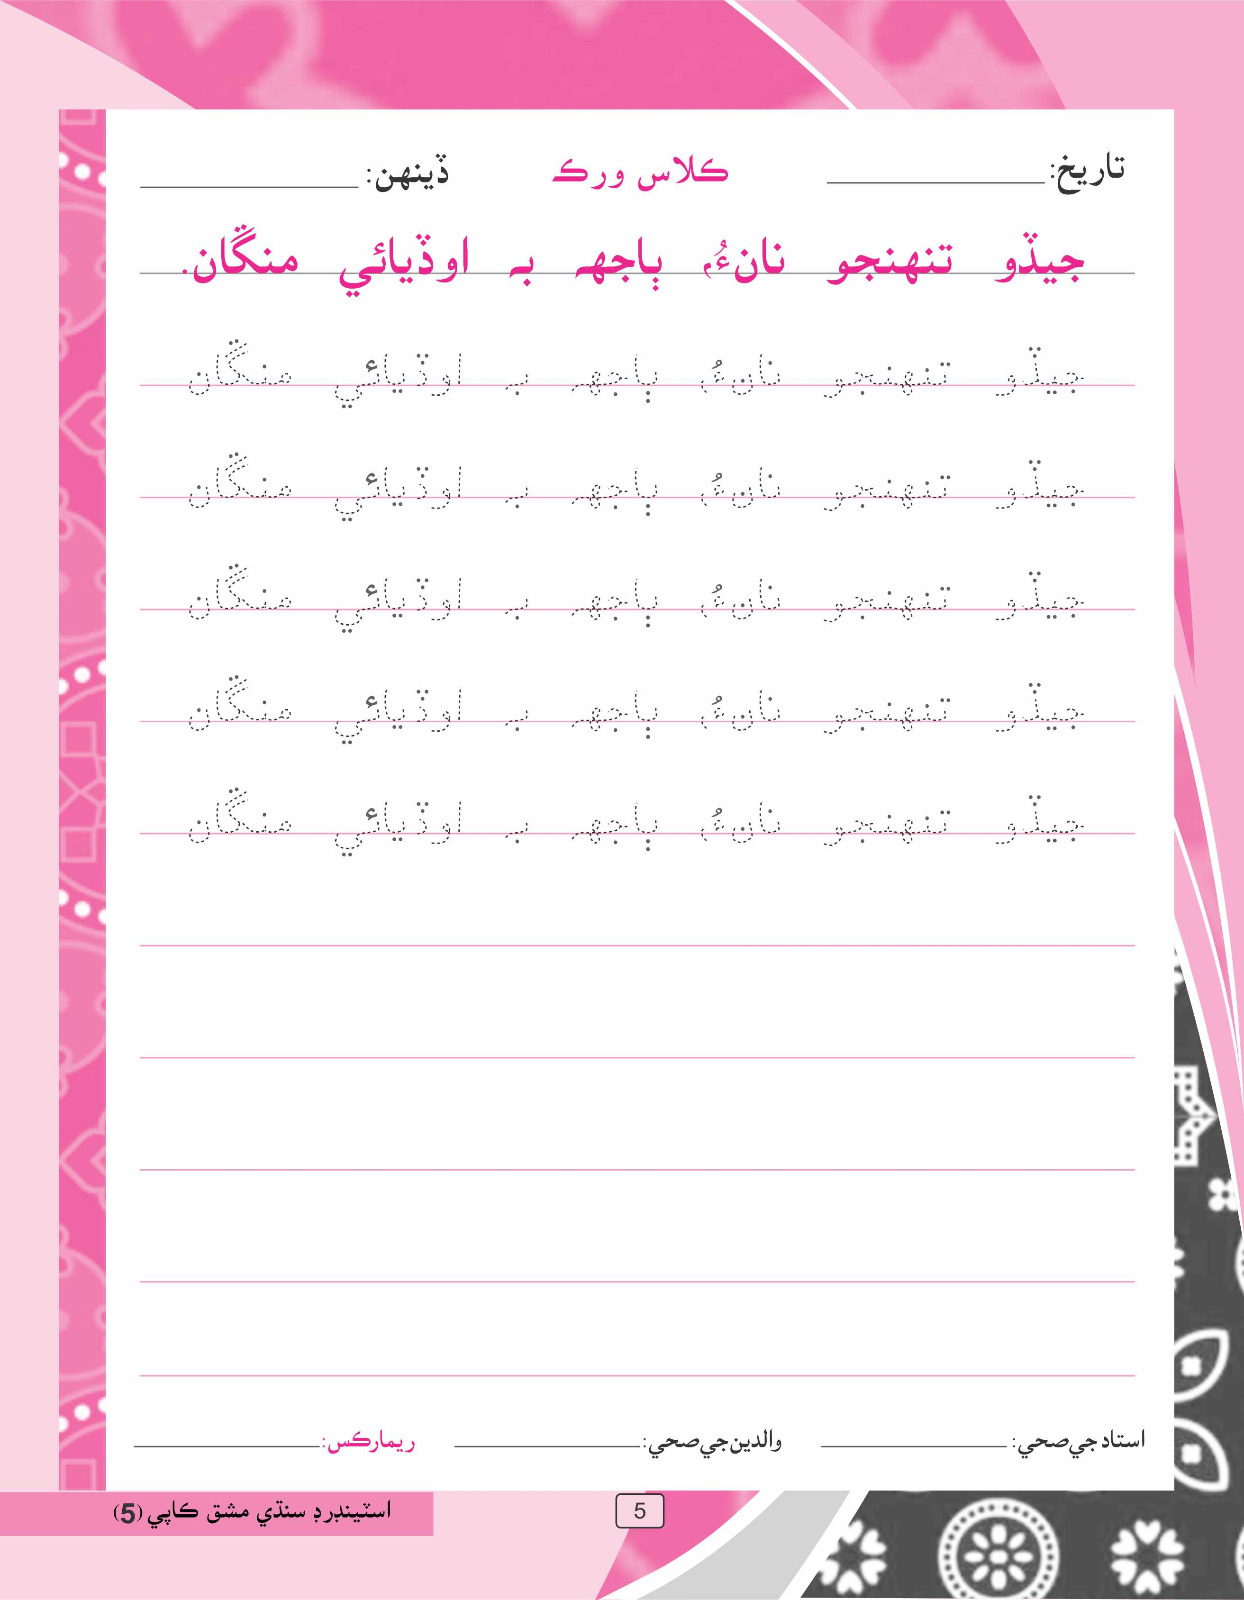 تاريخ: ڪلاس ورڪ ڏينهن:
جيڏو تنهنجو نانءُ، ٻاجهہ بہ اوڏيائي منگان.
جيڏو تنهنجو نانءُ، ٻاجهہ بہ اوڏيائي منگان
جيڏو تنهنجو نانءُ، ٻاجهہ بہ اوڏيائي منگان
جيڏو تنهنجو نانءُ، ٻاجهہ بہ اوڏيائي منگان
جيڏو تنهنجو نانءُ، ٻاجهہ بہ اوڏيائي منگان
جيڏو تنهنجو نانءُ، ٻاجهہ بہ اوڏيائي منگان
استاد جي صحي: والدين جي صحي: ريمارڪس:
5
اسٽينڊرڊ سنڌي مشق ڪاپي (5)